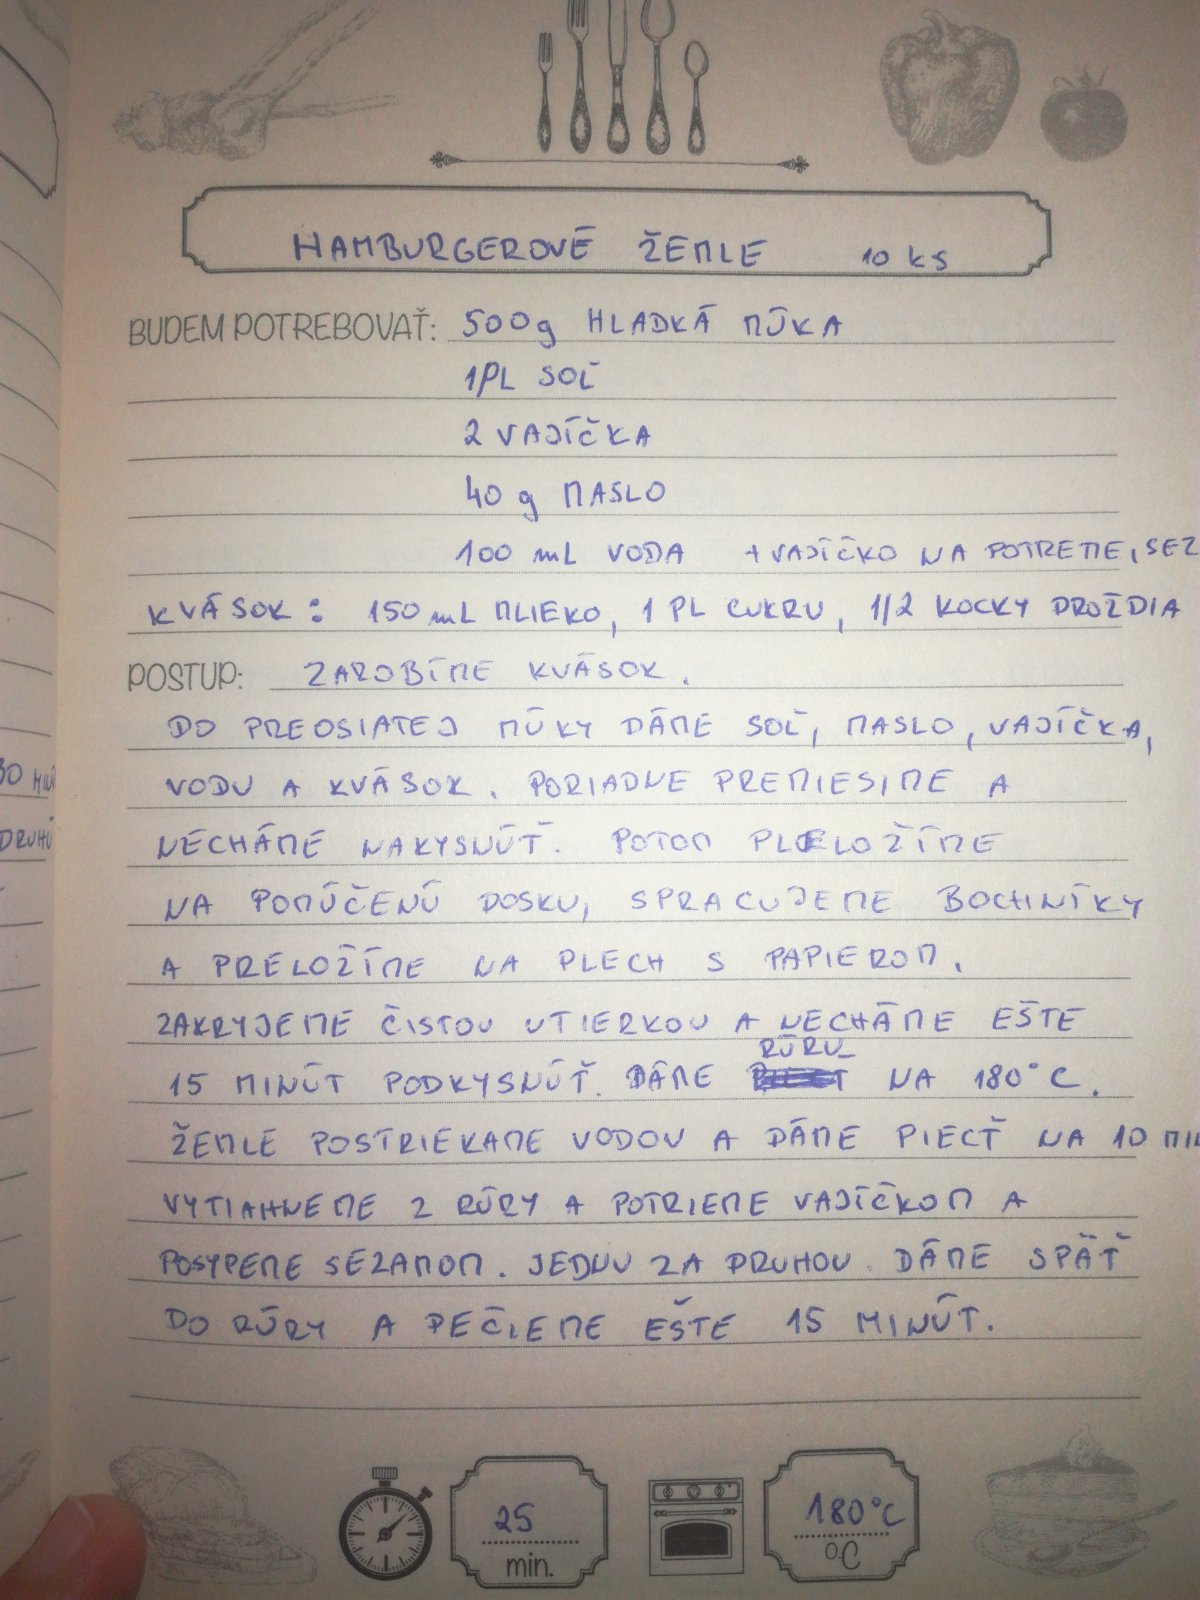 HAMBURGEROVÉ ŽEMLE 10 KS
BUDEM POTREBOVAŤ: 500g HLADKÁ MÚKA
1PL SOĽ
2 VAJÍČKA
40 g MASLO
100 mL VODA +VAJÍČKO NA POTRETIE, SEZ
KVÁSOK: 150 mL MLIEKO, 1 PL CUKRU, 1/2 KOCKY DROŽDIA
POSTUP: ZAROBÍME KVÁSOK.
DO PREOSIATEJ MÚKY DÁME SOĽ, MASLO, VAJÍČKA,
VODU A KVÁSOK. PORIADNE PREMIESIME A
NECHÁME NAKYSNÚŤ. POTOM PRELOŽÍME
NA POMÚČENÚ DOSKU, SPRACUJEME BOCHNÍKY
A PRELOŽÍME NA PLECH S PAPIEROM.
ZAKRYJEME ČISTOU UTIERKOU A NECHÁME EŠTE
15 MINÚT PODKYSNÚŤ. DÁME RÚRU NA 180°C.
ŽEMLE POSTRIEKAME VODOU A DÁME PIECŤ NA 10 MIN
VYTIAHNEME Z RÚRY A POTRIEME VAJÍČKOM A
POSYPEME SEZAMOM. JEDNU ZA DRUHOU. DÁME SPÄŤ
DO RÚRY A PEČIEME EŠTE 15 MINÚT.
30 MIN
DRUHÚ
25
min.
180°C
°C